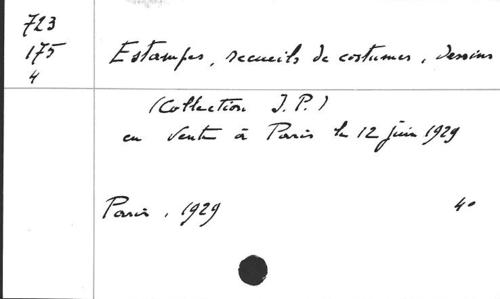 723
175
4
Estampes, recueils de costumes, dessins
(Collection J. P.)
en vente à Paris le 12 juin 1929
Paris, 1929
4°